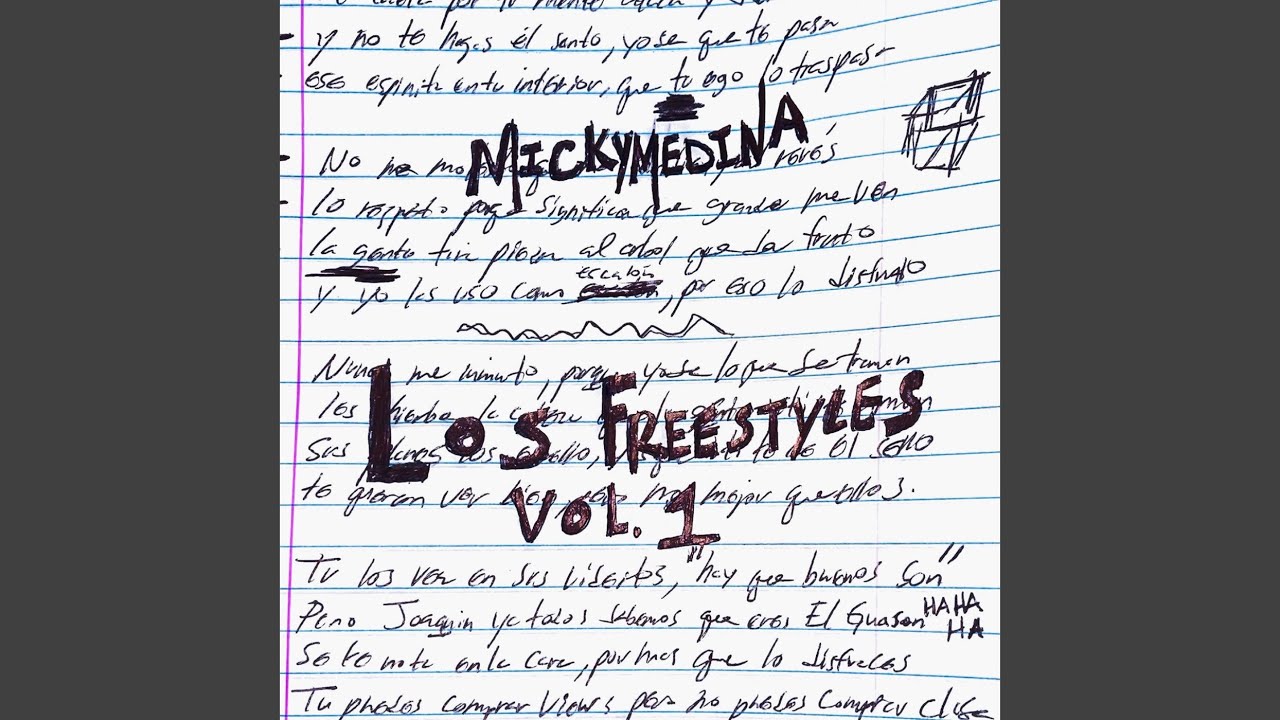 - y no te hagas el santo, yo se que te pasa
- ese espinita en tu interior, que tu ego lo traspasa
MICKYMEDINA
- No me revés
- lo respeto porque significa que grande me ven
- la gente tira piedra al arbol que da fruto
y yo los uso como escalón, por eso lo disfruto
Nunca me inmuto, porque yo se lo que se traman
LOS FREESTYLES
los hierbe la
sus el sello
te quieren ver bien, pero no mejor que ellos.
VOL. 1
Tu los ves en sus videitos, "hay que buenos son"
Pero Joaquin ya todos sabemos que eres El Guason HAHA HA
Se te nota en la cara, por mas que lo disfraces
Tu puedes comprar views pero no puedes comprar clase